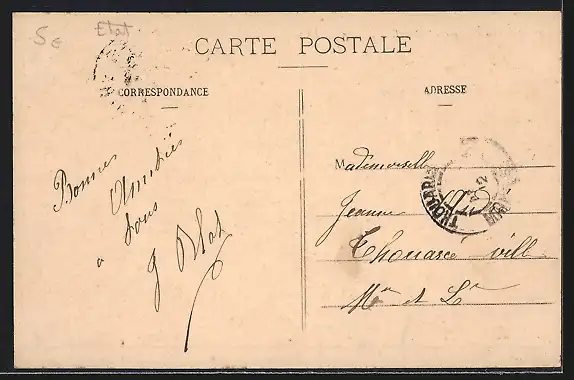 5 € Etat
CARTE POSTALE
CORRESPONDANCE
ADRESSE
Bonnes
Amitiés
à tous
J Blot
Mademoiselle
Jeanne
Thouaré ville
Mne et Lre
THOUARCÉ
12